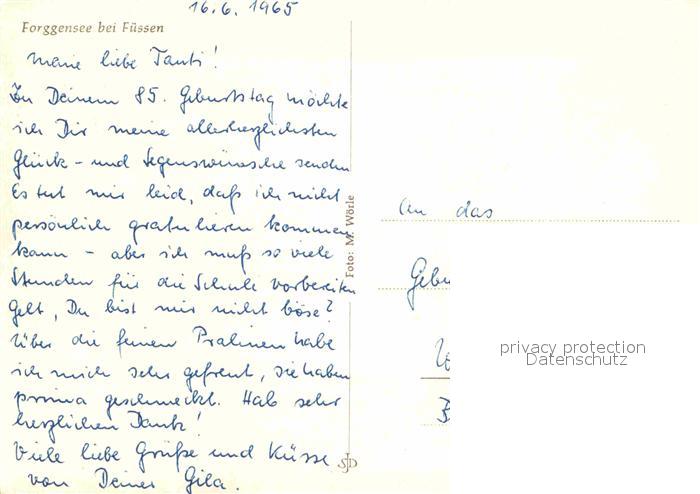 16.6.1965
Forggensee bei Füssen
Meine liebe Tanti!
Zu Deinem 85. Geburtstag möchte
ich Dir meine allerherzlichsten
Glück- und Segenswünsche senden
Es tut mir leid, daß ich nicht
persönlich gratulieren kommen
kann - aber ich muß so viele
Stunden für die Schule vorbereiten
Gelt, Du bist mir nicht böse?
Über die feinen Pralinen habe
ich mich sehr gefreut, sie haben
prima geschmeckt. Hab sehr
herzlichen Dank!
Viele liebe Grüße und Küsse
von Deiner Gila.
Foto: M. Wörle
An das
Gebu
B
privacy protection
Datenschutz